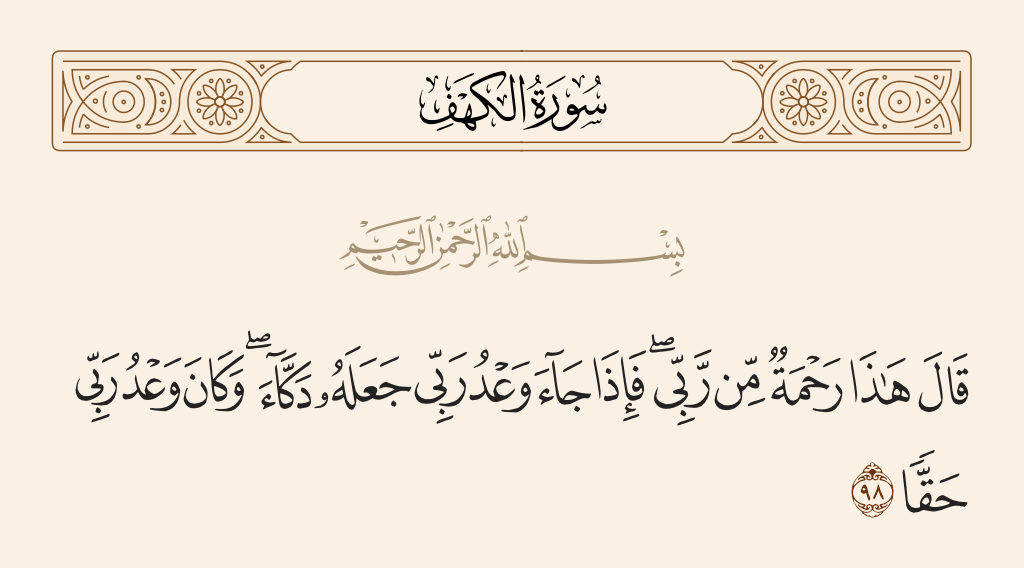 سُورَةُ الكَهْفِ
بِسْمِ ٱللَّهِ ٱلرَّحْمَٰنِ ٱلرَّحِيمِ
قَالَ هَٰذَا رَحْمَةٌ مِّن رَّبِّى ۖ فَإِذَا جَآءَ وَعْدُ رَبِّى جَعَلَهُۥ دَكَّآءَ ۖ وَكَانَ وَعْدُ رَبِّى
حَقًّا ٩٨